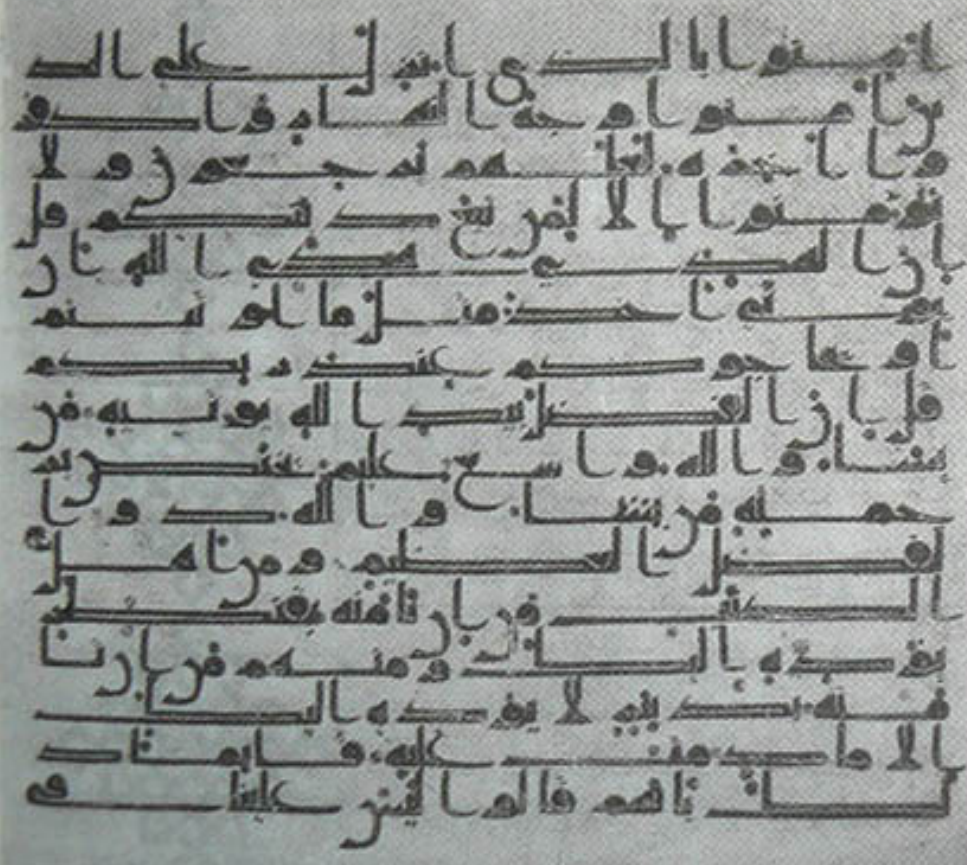 امنوا بالذي انزل على الذ
ين امنوا وجه النهار واكفر
وا اخره لعلهم يرجعون ولا
تومنوا الا لمن تبع دينكم قل
ان الهدى هدى الله ان
يوتى احد مثل ما اوتيتم
او يحاجوكم عند ربكم
قل ان الفضل بيد الله يوتيه من
يشا والله واسع عليم يختص بر
حمته من يشا والله ذو ا
لفضل العظيم ومن اهل
الكتب من ان تامنه بقنطر
يوده اليك ومنهم من ان تا
منه بدينر لا يوده اليك
الا ما دمت عليه قايما ذ
لك بانهم قالوا ليس علينا في